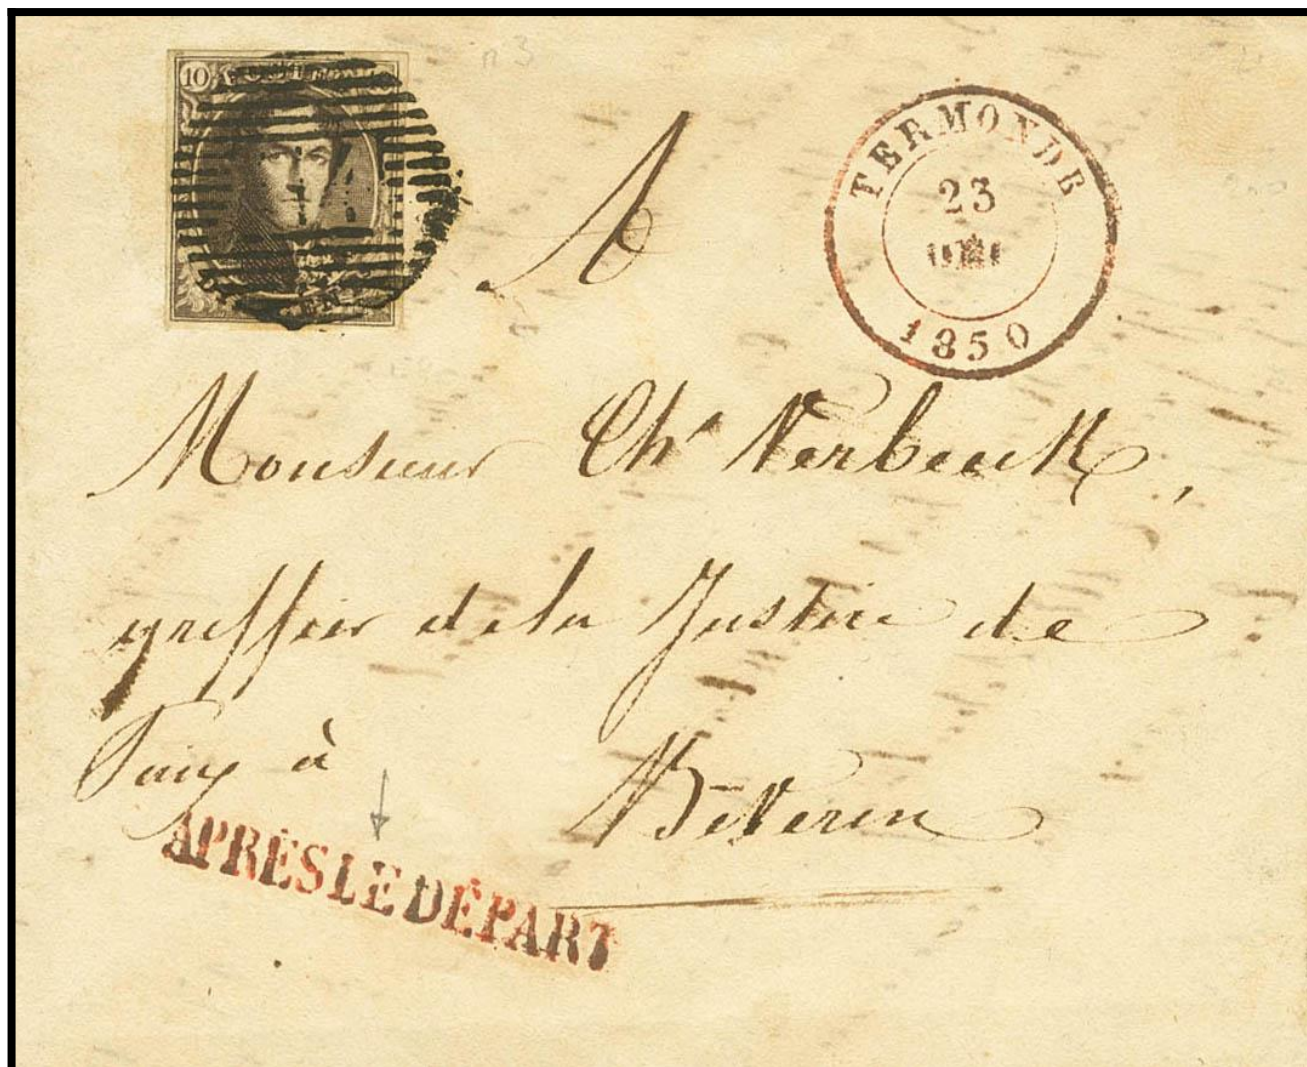 n 3
10 POSTES
TERMONDE
23
1850
A
Monsieur Chs Verbeeck,
greffier de la Justice de
Paix à Beveren
APRÈS LE DÉPART